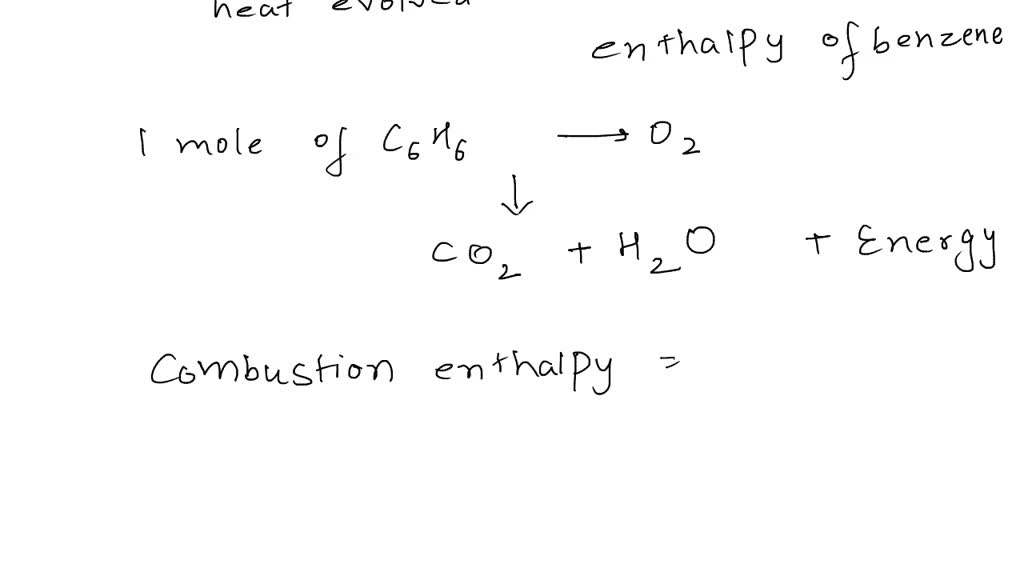 heat evolved
enthalpy of benzene
1 mole of C6H6 → O2
↓
CO2 + H2O + Energy
Combustion enthalpy =